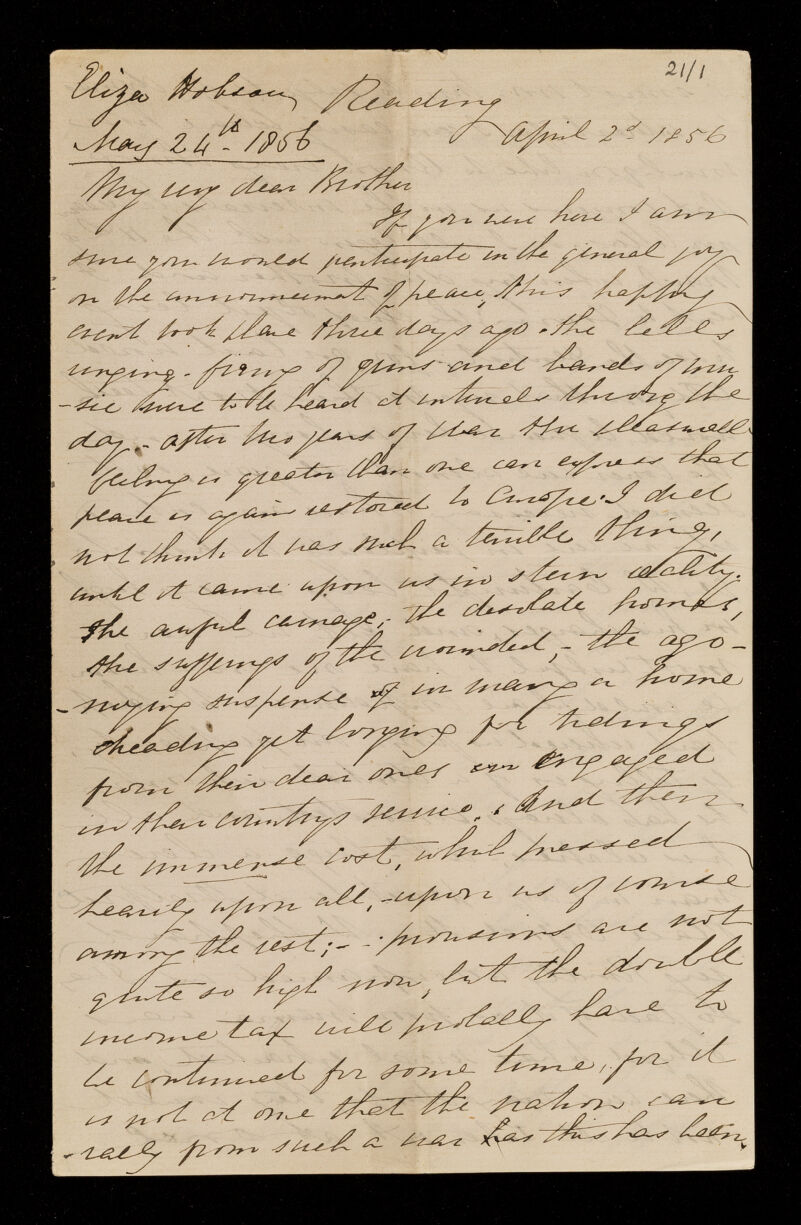 21/1
Eliza Hobson Reading
May 24th - 1856 April 2d 1856
My very dear Brother
If you were here I am
sure you would participate in the general joy
on the announcement of peace, this happy
event took place three days ago. the bells
ringing - firing of guns and bands of mu
-sic were to be heard at intervals throug the
day - after two years of war the
feeling is greater than one can express that
peace is again restored to Europe. I did
not think it was such a terrible thing,
until it came upon us in stern reality.
the awful carnage; the desolate homes,
the sufferings of the wounded, - the ago-
-nizing suspense of in many a home
dreading yet longing for tidings
from their dear ones engaged
in their countrys service. And then
the immense cost, which pressed
heavily upon all, - upon us of course
among the rest; - provisions are not
quite so high now, but the double
income tax will probably have to
be continued for some time, for it
is not at one that the nation can
-rally from such a war as this has been.